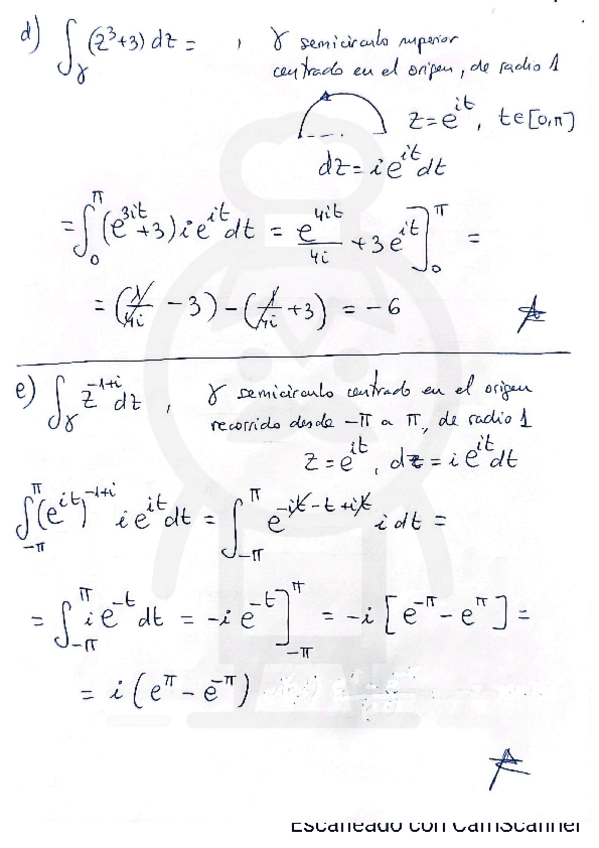 d) ∫_γ (z³+3) dz = , γ semicírculo superior
centrado en el origen, de radio 1
z = e^{it}, t∈[0,π]
dz = i e^{it} dt
= ∫_0^π (e^{3it}+3) i e^{it} dt = e^{4it}/4i + 3e^{it} ]_0^π =
= (1/4i - 3) - (1/4i + 3) = -6
e) ∫_γ z^{-1+i} dz , γ semicírculo centrado en el origen
recorrido desde -π a π, de radio 1
z = e^{it}, dz = i e^{it} dt
∫_{-π}^π (e^{it})^{-1+i} i e^{it} dt = ∫_{-π}^π e^{-it-t+it} i dt =
= ∫_{-π}^π i e^{-t} dt = -i e^{-t} ]_{-π}^π = -i [e^{-π} - e^π] =
= i (e^π - e^{-π})
Escaneado con CamScanner